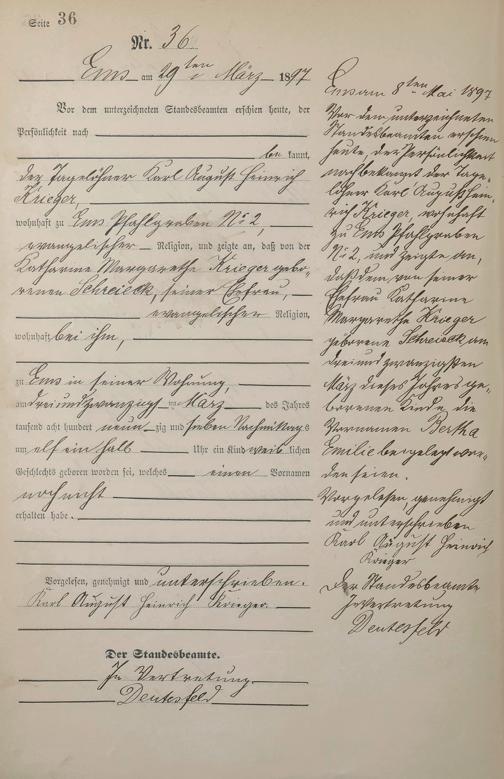 Seite 36
Nr. 36.
Ems am 29ten März 1897
Vor dem unterzeichneten Standesbeamten erschien heute, der
Persönlichkeit nach
be kannt,
der Tagelöhner Karl August Heinrich
Krieger,
wohnhaft zu Ems Pfahlgraben No 2,
evangelischer Religion, und zeigte an, daß von der
Katharine Margarethe Krieger gebo-
renen Schreieck, seiner Ehefrau,
evangelischer Religion,
wohnhaft bei ihm,
zu Ems in seiner Wohnung,
am dreiundzwanzigsten März des Jahres
tausend acht hundert neun zig und sieben Nachmittags
um elf ein halb Uhr ein Kind weib lichen
Geschlechts geboren worden sei, welches einen Vornamen
noch nicht
erhalten habe.
Vorgelesen, genehmigt und unterschrieben.
Karl August Heinrich Krieger
Der Standesbeamte.
In Vertretung
Deutesfeld
Ems am 8ten Mai 1897
Vor dem unterzeichneten
Standesbeamten erschien
heute, der Persönlichkeit
nach bekannt der Tage-
löhner Karl August Hein-
rich Krieger, wohnhaft
zu Ems Pfahlgraben
No 2, und zeigte an,
daß dem von seiner
Ehefrau Katharine
Margarethe Krieger
geborene Schreieck am
dreiundzwanzigsten
März dieses Jahres ge-
borenen Kinde die
Vornamen Bertha
Emilie beigelegt wor-
den seien.
Vorgelesen, genehmigt
und unterschrieben
Karl August Heinrich
Krieger
Der Standesbeamte
In Vertretung
Deutesfeld